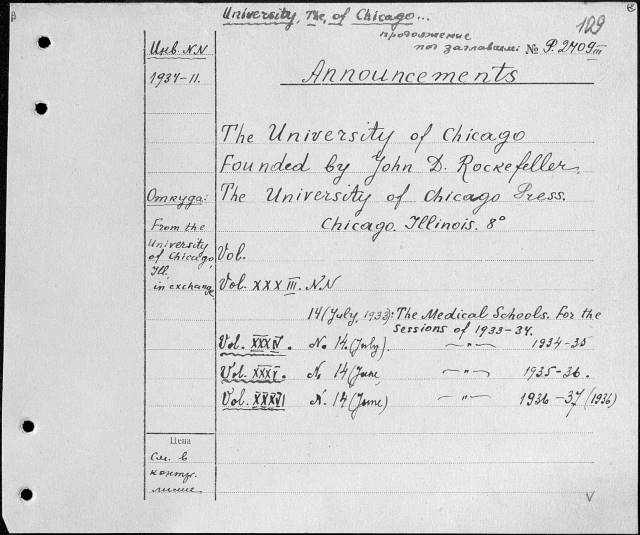 University, The, of Chicago...
109
продолжение
под заглавием: № P. 2409 III
Инв. NN
1934-11.
Announcements
The University of Chicago
Founded by John D. Rockefeller.
Откуда:
The University of Chicago Press.
Chicago. Illinois. 8°
From the
University
of Chicago,
Ill.
in exchange
Vol.
Vol. XXXIII. NN
14 (July, 1933): The Medical Schools. For the
sessions of 1933-34.
Vol. XXXIV. No. 14. (July). —"— 1934-35
Vol. XXXV. N. 14 (June) —"— 1935-36.
Vol. XXXVI N. 14 (June) —"— 1936-37 (1936)
Цена
См. в
контр.
листе
V